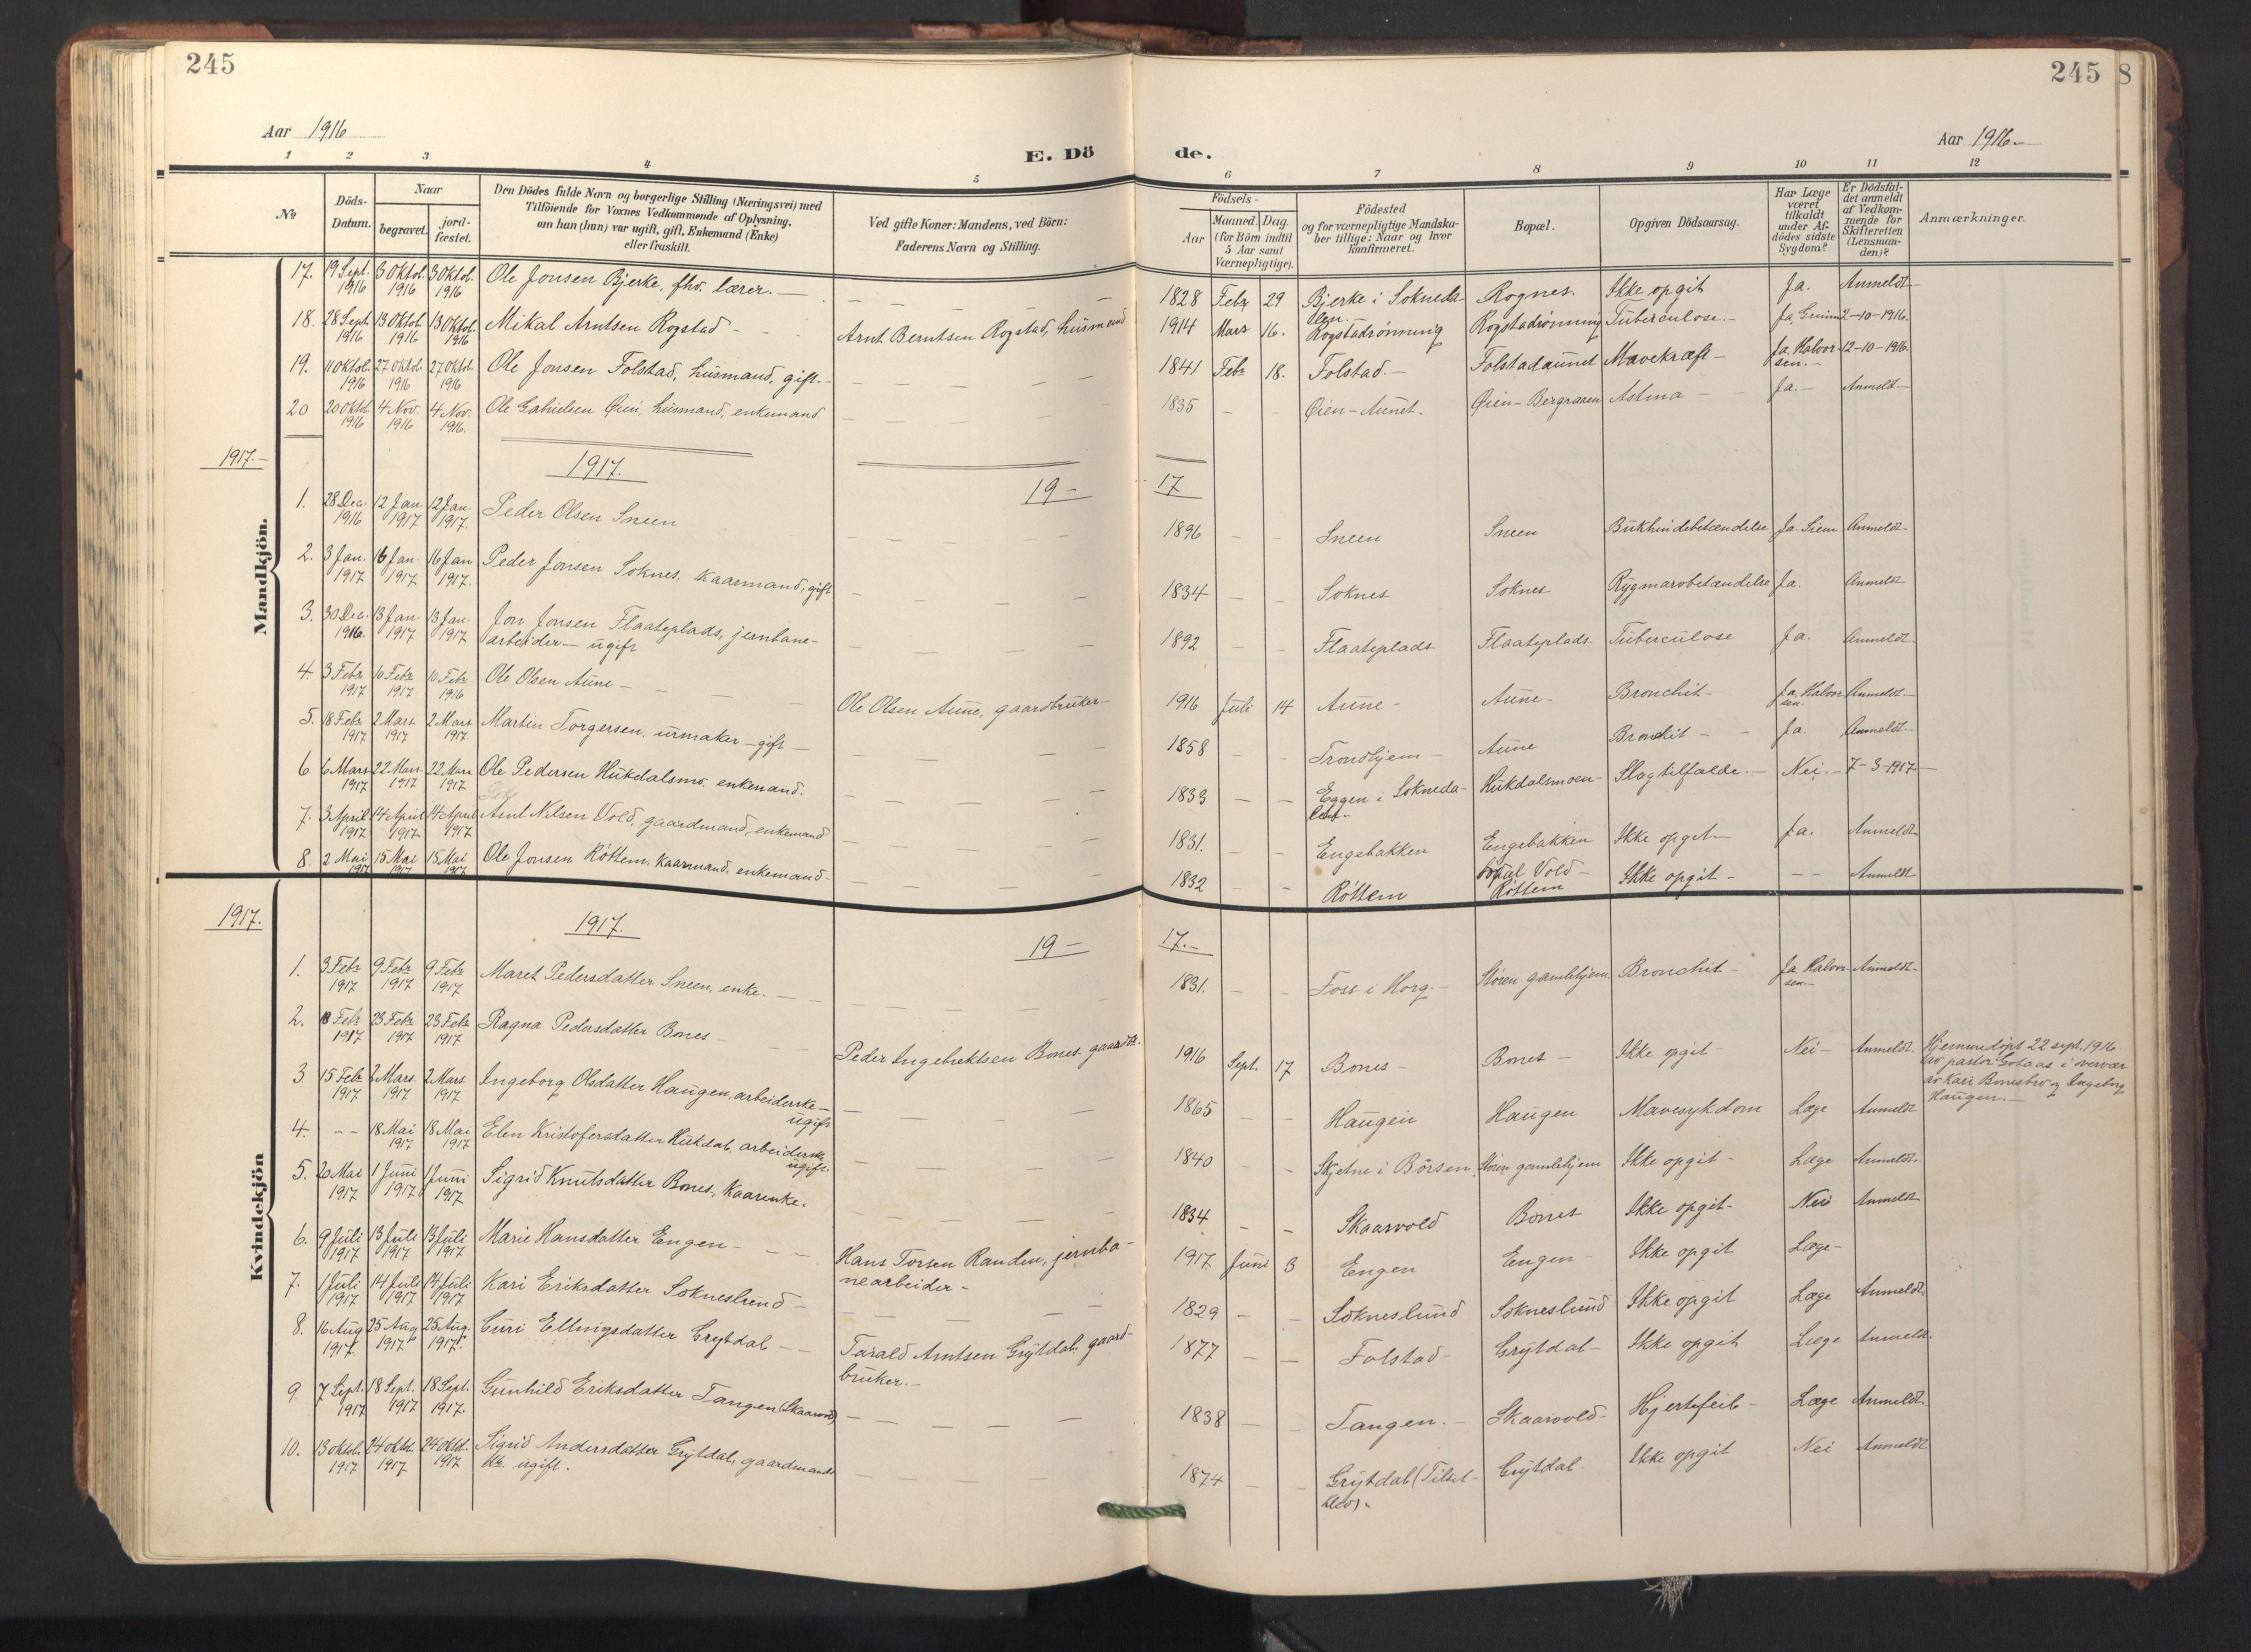 245
245
8
Aar 1916
Aar 1916
E. Dö
de.
1 2 3 4 5
6 7 8 9 10 11 12
№
Döds-
Datum.
Naar
begravet.
jord-
fæstet.
Den Dödes fulde Navn og borgerlige Stilling (Næringsvei) med
Tilföiende for Voxnes Vedkommende af Oplysning,
om han (hun) var ugift, gift, Enkemand (Enke)
eller fraskilt.
Ved gifte Koner: Mandens, ved Börn:
Faderens Navn og Stilling.
Födsels-
Aar
Maaned.
Dag.
(for Börn indtil
5 Aar samt
Værnepligtige).
Födested
og for værnepligtige Mandska-
ber tillige: Naar og hvor
konfirmeret.
Bopæl.
Opgiven Dödsaarsag.
Har Læge
været
tilkaldt
under Af-
dödes sidste
Sygdom?
Er Dödsfal-
det anmeldt
af Vedkom-
mende for
Skifteretten
(Lensman-
den)?
Anmærkninger.
Mandkjön.
17. 19 Sept. 1916 3 Oktob. 1916 3 Oktob. 1916 Ole Jonsen Bjerke, fhv. lærer. — 1828 Febr 29 Bjerke i Sokneda-
len. Rognes. Ikke opgit Ja. Anmeldt-
18. 28 Sept. 1916 13 Oktob. 1916 13 Oktob. 1916 Mikal Arntsen Rogstad - Arnt Berntsen Rogstad, husmand 1914 Mars 16. Rogstadrønning Rogstadrønning Tuberculose.- Ja, Grimm 2-10-1916.
19. 11 Oktob. 1916 27 Oktob. 1916 27 Oktob. 1916 Ole Jonsen Folstad, husmand, gift.- 1841 Febr 18. Folstad.- Folstadaunet Mavekræft- Ja, Halvor-
sen.- 12-10-1916.
20 20 Oktob 1916 4 Nov. 1916 4 Nov. 1916. Ole Gabrielsen Øien, husmand, enkemand 1835 - - Øien-Aunet. Øien-Bergraaen Astma - Ja.- Anmeldt-
1917.-
1917.
19-
17
1. 28 Dec. 1916 12 Jan. 1917 12 Jan. 1917. Peder Olsen Sneen 1896 - - Sneen Sneen Bukhindebetændelse Ja Siem Anmeldt-
2. 3 Jan. 1917 16 Jan. 1917 16 Jan 1917. Peder Jonsen Soknes, kaarmand, gift 1834 - - Soknes Soknes Rygmarvbetændelse Ja. Anmeldt
3. 30 Dec. 1916. 13 Jan. 1917 13 Jan. 1917 Jon Jonsen Flaateplads, jernbane-
arbeider- ugift 1892 - - Flaateplads Flaateplads Tuberculose Ja. Anmeldt
4. 3 Febr 1917 10 Febr 1917 10 Febr 1916 Ole Olsen Aune - Ole Olsen Aune, gaardbruker- 1916 Juli 14 Aune- Aune- Bronchit- Ja, Halvor
sen. Anmeldt-
5. 18 Febr 1917 2 Mars 1917 2 Mars 1917. Martin Torgersen, urmaker-gift- 1858 - - Trondhjem- Aune Bronchit - Ja. Anmeldt.-
6 6 Mars 1917 22 Mars 1917 22 Mars 1917 Ole Pedersen Hukdalsmo, enkemand. 1833 - - Eggen i Sokneda-
len. Hukdalsmoen- Slagtilfælde.- Nei.- 7-3-1917-
7. 3 April 1917 14 April 1917 14 April 1917 Arnt Nilsen Vold, gaardmand, enkemand 1831. - - Engebakken Engebakken
Vold- Ikke opgit- Ja. Anmeldt-
8. 2 Mai 1917 15 Mai 1917 15 Mai 1917 Ole Jonsen Röttem, kaarmand, enkemand- 1832 - - Röttem Röttem Ikke opgit- -- Anmeldt
Kvindekjön
1917.
1917.
19-
17.-
1. 3 Febr 1917 9 Febr 1917 9 Febr 1917 Maret Pedersdatter Sneen, enke.- 1831. - - Foss i Horg- Støren gamlehjem Bronchit- Ja, Halvor
sen- Anmeldt-
2. 18 Febr 1917 23 Febr 1917 23 Febr 1917 Ragna Pedersdatter Bones- Peder Ingebriktsen Bones gaardbr. 1916 Sept. 17 Bones- Bones- Ikke opgit- Nei- Anmeldt. Hjemmedöpt 22 sept. 1916
av pastor Gotaas i overvær
av Kari Bonesbro og Ingeborg
Haugen.-
3 15 Febr 1917 2 Mars 1917 2 Mars 1917 Ingeborg Olsdatter Haugen, arbeiderske-
ugift 1865 - - Haugen Haugen Mavesykdom Læge Anmeldt
4. -- 18 Mai 1917 18 Mai 1917 Elen Kristofersdatter Hukdal, arbeiderske
ugift. 1840 - Skjetne i Börsen. Støren gamlehjem Ikke opgit- Læge Anmeldt.
5. 20 Mai 1917 1 Juni 1917 1 Juni 1917 Sigrid Knutsdatter Bones, kaarenke. 1834 - - Skaarvold Bones Ikke opgit- Nei Anmeldt
6. 9 Juli 1917 13 Juli 1917 13 Juli 1917 Marie Hansdatter Engen- Hans Torsen Randen, jernba-
nearbeider- 1917 Juni 3 Engen Engen- Ikke opgit Læge-
7. 1 Juli 1917 14 Juli 1917 14 Juli 1917 Kari Eriksdatter Sokneslund- 1829 - - Sokneslund Sokneslund Ikke opgit Læge Anmeldt.
8. 16 Aug 1917. 25 Aug 1917 25 Aug. 1917. Guri Ellingsdatter Grytdal-- Tarald Arntsen Grytdal, gaard-
bruker.- 1877 - - Folstad- Grytdal- Ikke opgit Læge Anmeldt.
9. 7 Sept. 1917 18 Sept. 1917 18 Sept. 1917. Gunhild Eriksdatter Tangen (Skaarvold) 1838 - Tangen.- Skaarvold- Hjertefeil- Læge Anmeldt.
10. 13 oktob. 1917 24 oktob. 1917 24 oktob. 1917 Sigrid Andersdatter Grytdal, gaardmands
dtr. ugift. 1874 - - Grytdal (Tilset-
kleiv). Grytdal. Ikke opgit Nei Anmeldt